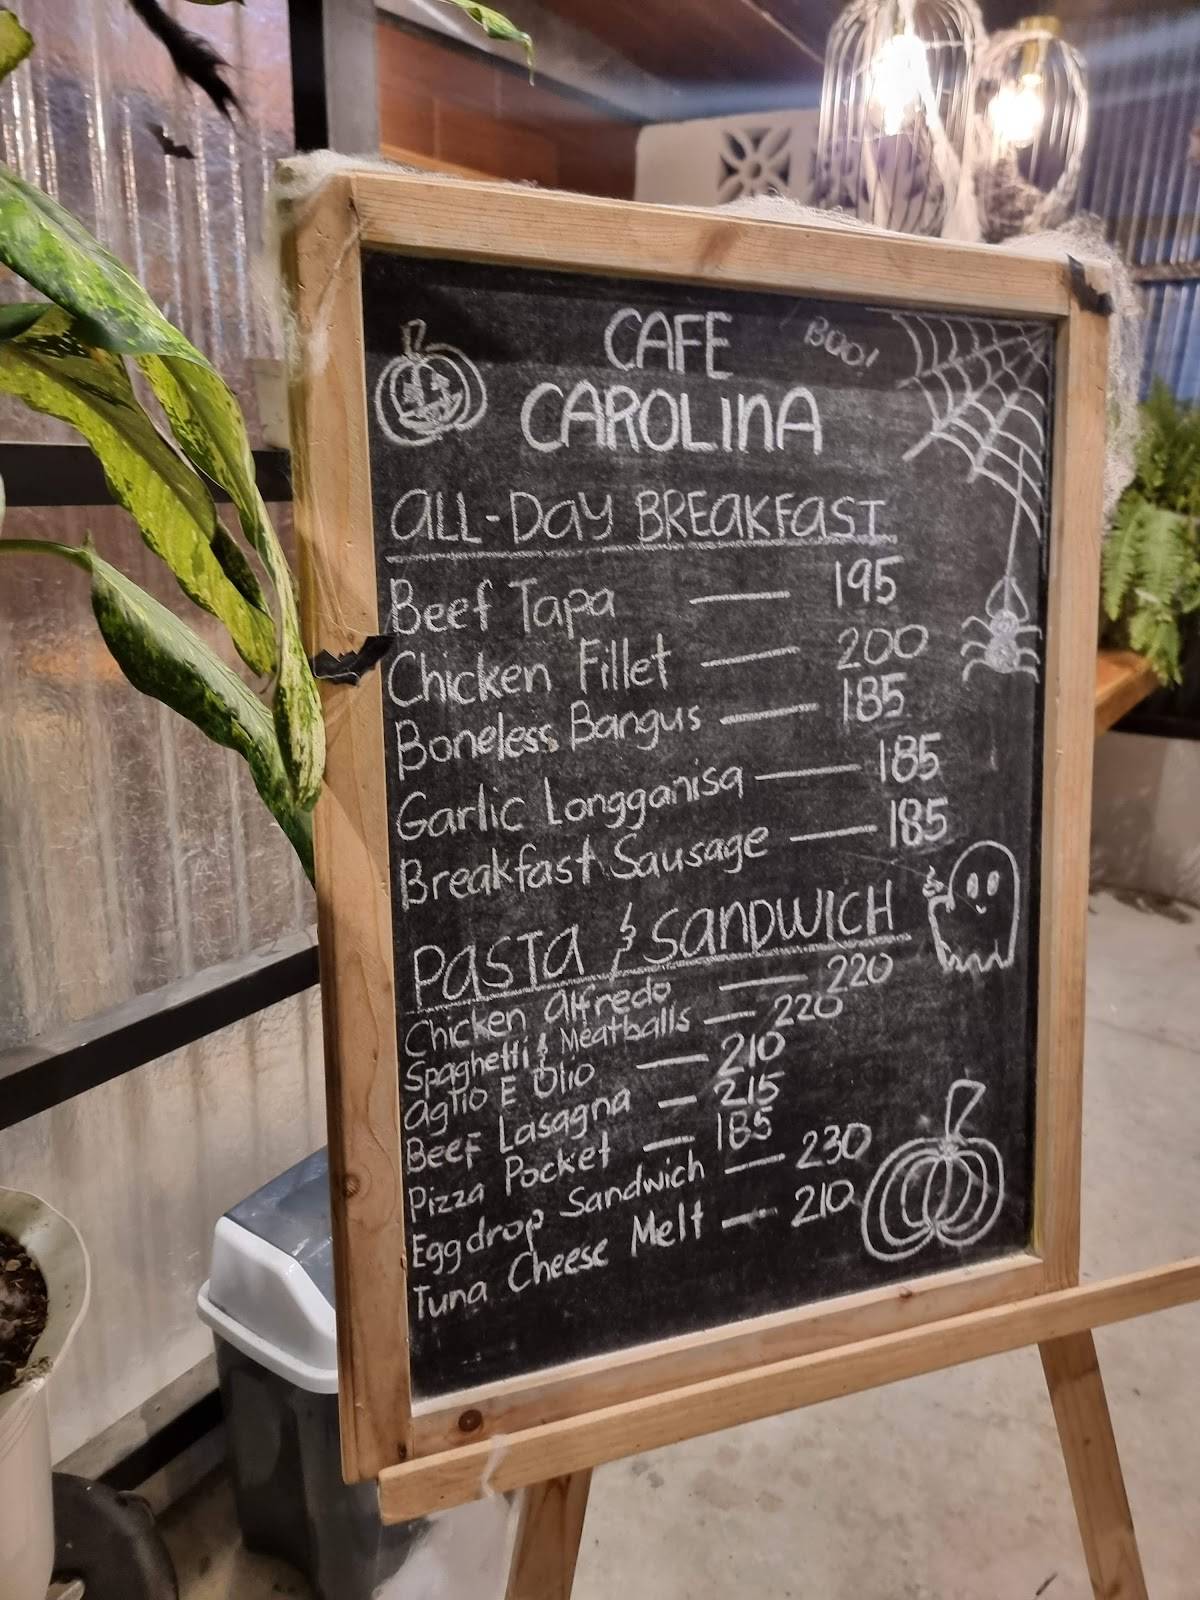 CAFE
CAROLINA
BOO!
ALL-DAY BREAKFAST
Beef Tapa — 195
Chicken Fillet — 200
Boneless Bangus — 185
Garlic Longganisa — 185
Breakfast Sausage — 185
PASTA & SANDWICH
Chicken Alfredo — 220
Spaghetti & Meatballs — 220
Aglio E Olio — 210
Beef Lasagna — 215
Pizza Pocket — 185
Eggdrop Sandwich — 230
Tuna Cheese Melt — 210